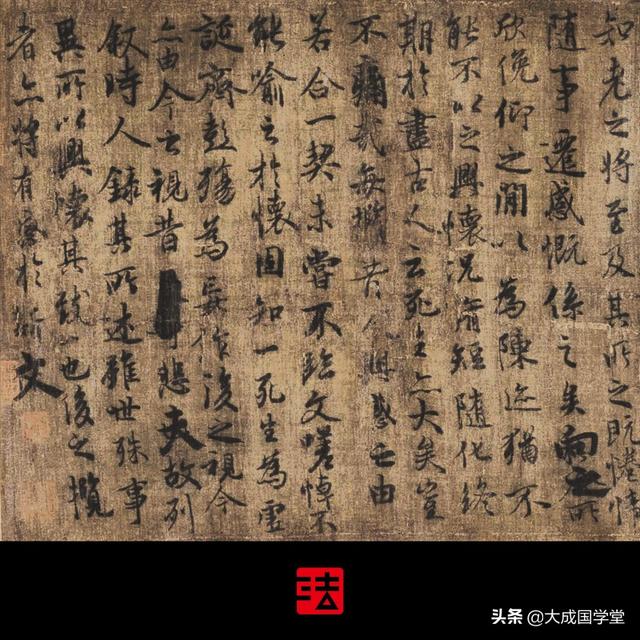 知老之將至及其所之既惓情
随事遷感慨係之矣向之所
欣俛仰之閒以為陳迹猶不
能不以之興懷況脩短随化終
期於盡古人云死生亦大矣豈
不痛哉每攬昔人興感之由
若合一契未嘗不臨文嗟悼不
能喻之於懷固知一死生為虛
誕齊彭殤為妄作後之視今
亦由今之視昔悲夫故列
叙時人錄其所述雖世殊事
異所以興懷其致一也後之攬
者亦將有感於斯文
法
头条 @大成国学堂